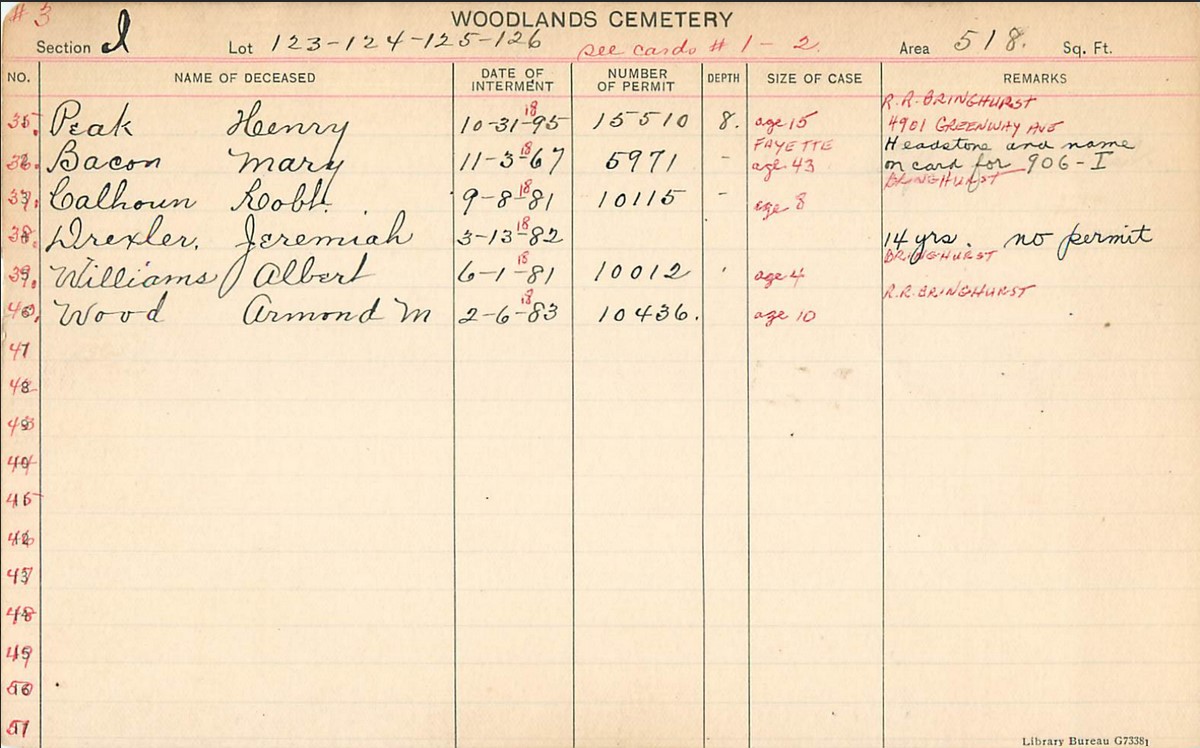 #3
WOODLANDS CEMETERY
Section I Lot 123-124-125-126 see cards #1-2. Area 518. Sq. Ft.
NO. NAME OF DECEASED DATE OF INTERMENT NUMBER OF PERMIT DEPTH SIZE OF CASE REMARKS
R.R. BRINGHURST
35. Peak Henry 10-31-1895 15510 8. age 15 4901 GREENWAY AVE
36. Bacon Mary 11-3-1867 5971 - FAYETTE age 43 Headstone and name on card for 906-I
37. Calhoun Robt. 9-8-1881 10115 - age 8 BRINGHURST
38. Drexler, Jeremiah 3-13-1882 14 yrs. no permit
39. Williams Albert 6-1-1881 10012 age 4 BRINGHURST
40. Wood Armond M 2-6-1883 10436. age 10 R.R. BRINGHURST
41
42
43
44
45
46
47
48
49
50
51
Library Bureau G73381